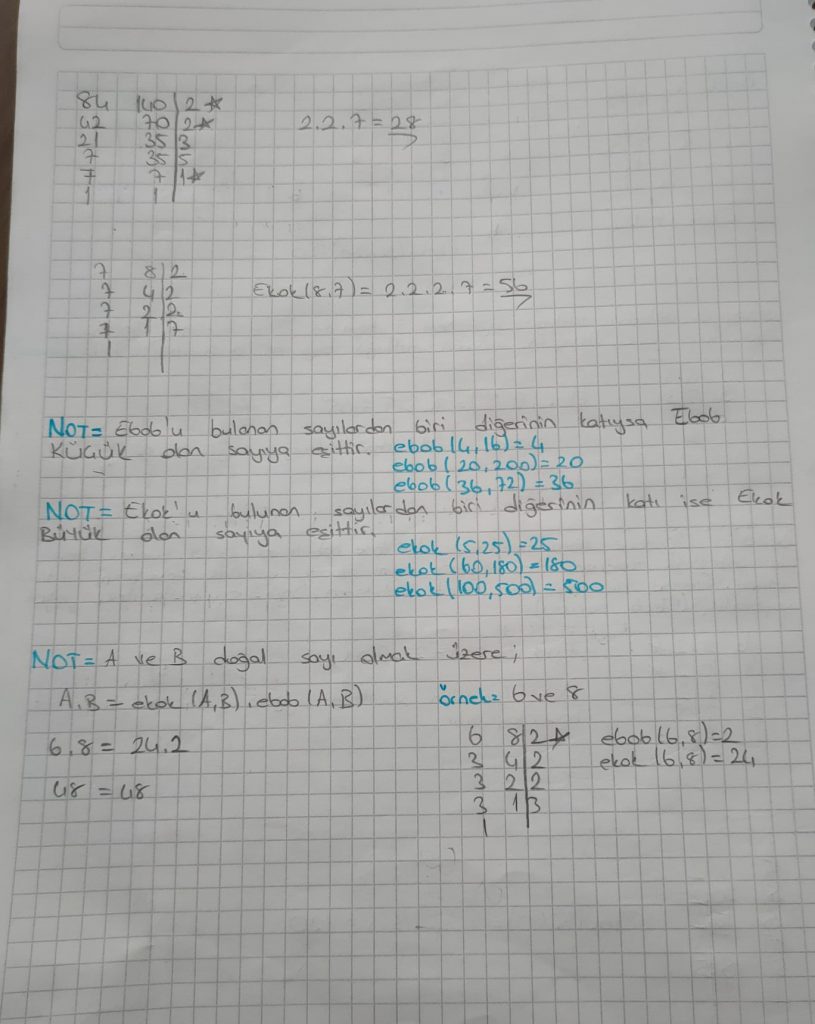 84 140 | 2 ☆
42 70 | 2 ☆ 2.2.7 = 28
21 35 | 3
7 35 | 5
7 7 | 1 ☆
1 1
7 8 | 2
7 4 | 2 Ekok(8,7) = 2.2.2.7 = 56
7 2 | 2
7 1 | 7
1
NOT= Ebob'u bulunan sayılardan biri diğerinin katıysa Ebob
KÜÇÜK olan sayıya eşittir. ebob (4,16) = 4
ebob (20,200) = 20
ebob (36,72) = 36
NOT= Ekok'u bulunan sayılardan biri diğerinin katı ise Ekok
BÜYÜK olan sayıya eşittir.
ekok (5,25) = 25
ekok (60,180) = 180
ekok (100,500) = 500
NOT= A ve B doğal sayı olmak üzere;
A.B = ekok (A,B).ebob (A,B) örnek= 6 ve 8
6.8 = 24.2 6 8 | 2 ☆ ebob (6,8) = 2
3 4 | 2 ekok (6,8) = 24
48 = 48 3 2 | 2
3 1 | 3
1